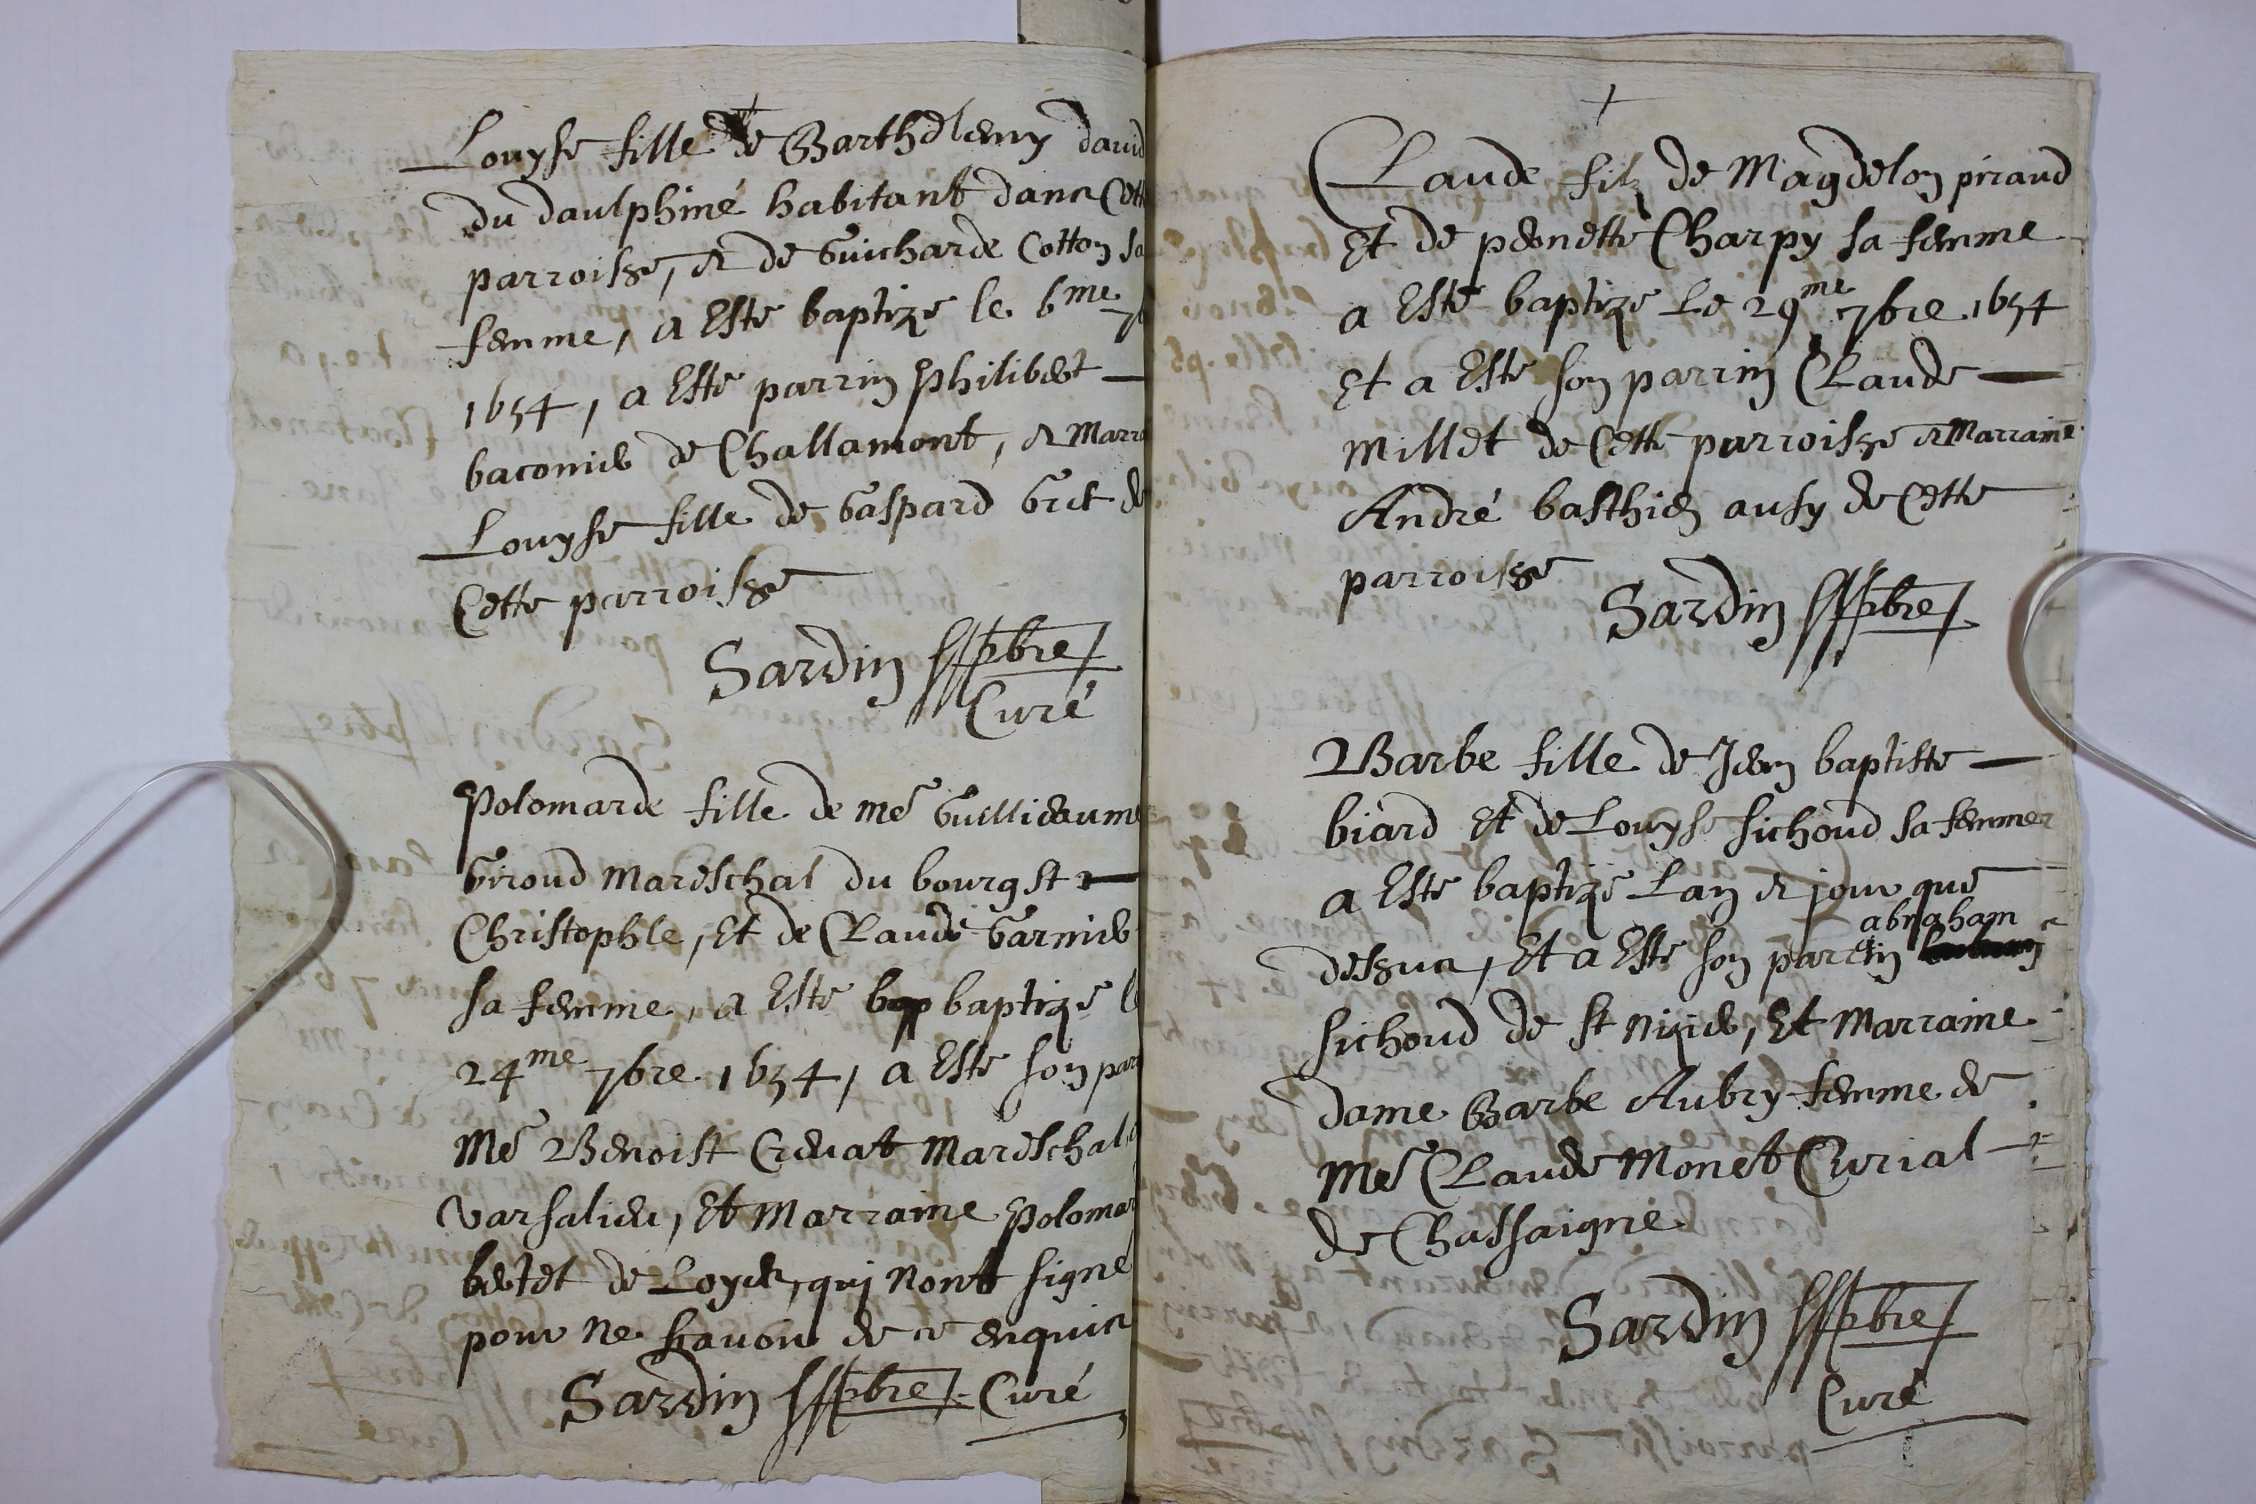 Louyse fille de Barthelemy david
du daulphiné habitant dans Cett
parroisse, & de Guicharde Cotton sa
femme, a Esté baptizé le 6me 7b
1654, a Esté parrin Philibert
baconier de Challamont, & Marra
Louyse fille de Gaspard Gret de
Cette parroisse
Sardin pbre
Curé
Polomarde fille de Me Guillieaume
Giroud Mareschal du bourg St
Christophle, Et de Claude Garnier
sa femme, a Esté bap baptizé le
24me 7bre 1654, a Esté son parr
Me Benoist Crevat Mareschal
Varsalieu, Et Marraine Polomar
bertet de Loyes, qui nont signe
pour ne scavoir de ce enquis
Sardin pbre Curé
Claude filz de Magdelon piraud
Et de peonette Charpy sa femme
a Esté baptizé Le 29me 7bre 1654
Et a Esté son parrin Claude
Millet de Cette parroisse & Marraine
André basthien ausy de Cette
parroisse
Sardin pbre
Barbe fille de Jean baptiste
biard Et de Louyse sichoud sa femme
a Esté baptizé Lan & jour que
abraham
dessus, Et a Esté son parrin
sichoud de St Nizier, Et Marraine
dame Barbe Aubry femme de
Me Claude Monet Curial
de Chassaigne
Sardin pbre
Curé